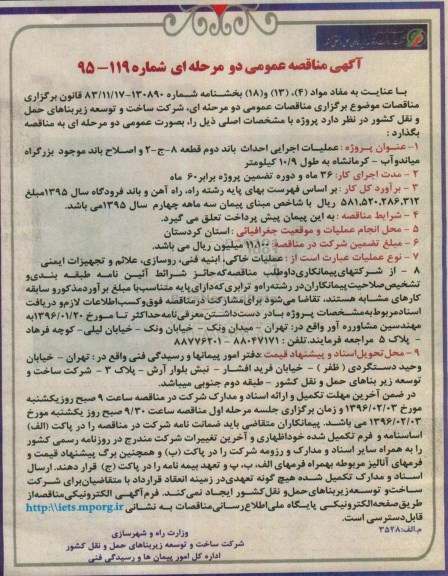 آگهی مناقصه عمومی دو مرحله ای شماره ۱۱۹–۹۵
با عنایت به مفاد مواد (۴)، (۱۳) و(۱۸) بخشنامه شماره ۱۳۰۸۹۰-۸۳/۱۱/۱۷ قانون برگزاری
مناقصات موضوع برگزاری مناقصات عمومی دو مرحله ای، شرکت ساخت و توسعه زیربناهای حمل
و نقل کشور در نظر دارد پروژه با مشخصات اصلی ذیل را، بصورت عمومی دو مرحله ای به مناقصه
بگذارد :
۱- عنـوان پـروژه : عملیات اجرایی احداث باند دوم قطعه ۸-ج-۲ و اصلاح باند موجود بزرگراه
میاندوآب - کرمانشاه به طول ۱۰/۹ کیلومتر
۲ - مدت اجرای کار: ۳۶ ماه و دوره تضمین پروژه برابر ۶۰ ماه
۳ - بر آورد کل کار : بر اساس فهرست بهای پایه رشته راه، راه آهن و باند فرودگاه سال ۱۳۹۵مبلغ
۵۸۱،۵۲۰،۲۸۶،۳۱۲ ریال با شاخص مبنای پیمان سه ماهه چهارم سال ۱۳۹۵می باشد.
۴ - شرایط مناقصه : به این پیمان پیش پرداخت تعلق می گیرد.
۵ - محل انجام عملیات و موقعیت جغرافیائی : استان کردستان
۶ - مبلغ تضمین شرکت در مناقصه: ۱۱،۱۰۰ میلیون ریال می باشد.
۷ - نوع عملیات عبارت است از : عملیات خاکی، ابنیه فنی، روسازی، علائم و تجهیزات ایمنی
۸ - از شرکتهای پیمانکاری داوطلب مناقصه که حائـز شرائط آئیـن نامـه طبقـه بندی و
تشخیص صلاحیت پیمانکاران در رشته راه و ترابری که دارای پایه متناسب با مبلغ بر آورد مذکور و سابقه
کارهای مشابه هستند، تقاضا می شود برای مشارکت در مناقصه فوق و کسب اطلاعات لازم و دریافت
اسناد مربوط به مشخصات پروژه با در دست داشتن معرفی نامه حداکثر تا مورخ ۱۳۹۶/۰۱/۲۰به
مهندسین مشاور ره آور واقع در: تهران - میدان ونک - خیابان ونک - خیابان لیلی- کوچه فرهاد
- پلاک ۵ مراجعه فرمایند. تلفن : ۸۸۰۴۷۱۷۱ - ۸۸۷۷۶۲۰۱
۹ - محل تحویل اسناد و پیشنهاد قیمت :دفتر امور پیمانها و رسیدگی فنی واقع در : تهران - خیابان
وحید دستگردی ( ظفر ) - خیابان فرید افشار - نبش بلوار آرش - پلاک ۳ - شرکت ساخت و
توسعه زیر بناهای حمل و نقل کشور - طبقه دوم جنوبی میباشد.
در ضمن آخرین مهلت تکمیل و ارائه اسناد و مدارک شرکت در مناقصه ساعت ۹ صبح روز یکشنبه
مورخ ۱۳۹۶/۰۲/۰۳ و زمان برگزاری جلسه مرحله اول مناقصه ساعت ۹/۳۰ صبح روز یکشنبه مورخ
۱۳۹۶/۰۲/۰۳ می باشد. پیمانکاران متقاضی باید ضمانت نامه شرکت در مناقصه را در پاکت (الف)
اساسنامه و فرم تکمیل شده خوداظهاری و آخرین تغییرات شرکت مندرج در روزنامه رسمی کشور
را به همراه سایر اسناد و مدارک و رزومه شرکت را در پاکت (ب) و همچنین برگ پیشنهاد قیمت و
فرمهای آنالیز مربوطه بهمراه فرمهای الف، ب، پ و تعهد بیمه نامه را در پاکت (ج) قرار دهند. ارسال
اسناد و مدارک تکمیل شده هیچ گونه تعهدی در زمینه انعقاد قرارداد با متقاضیان برای شرکت
ساخت و توسعه زیربناهای حمل و نقل کشور ایجاد نمی کند. فرم آگهی الکترونیکی مناقصه از
طریق صفحه الکترونیکـی پایگاه ملی اطلاع رسانی مناقصات به نشانی http:\\iets.mporg.ir
قابل دسترسی است.
م.الف:۳۵۲۸
وزارت راه و شهرسازی
شرکت ساخت و توسعه زیربناهای حمل و نقل کشور
اداره کل امور پیمان ها و رسیدگی فنی